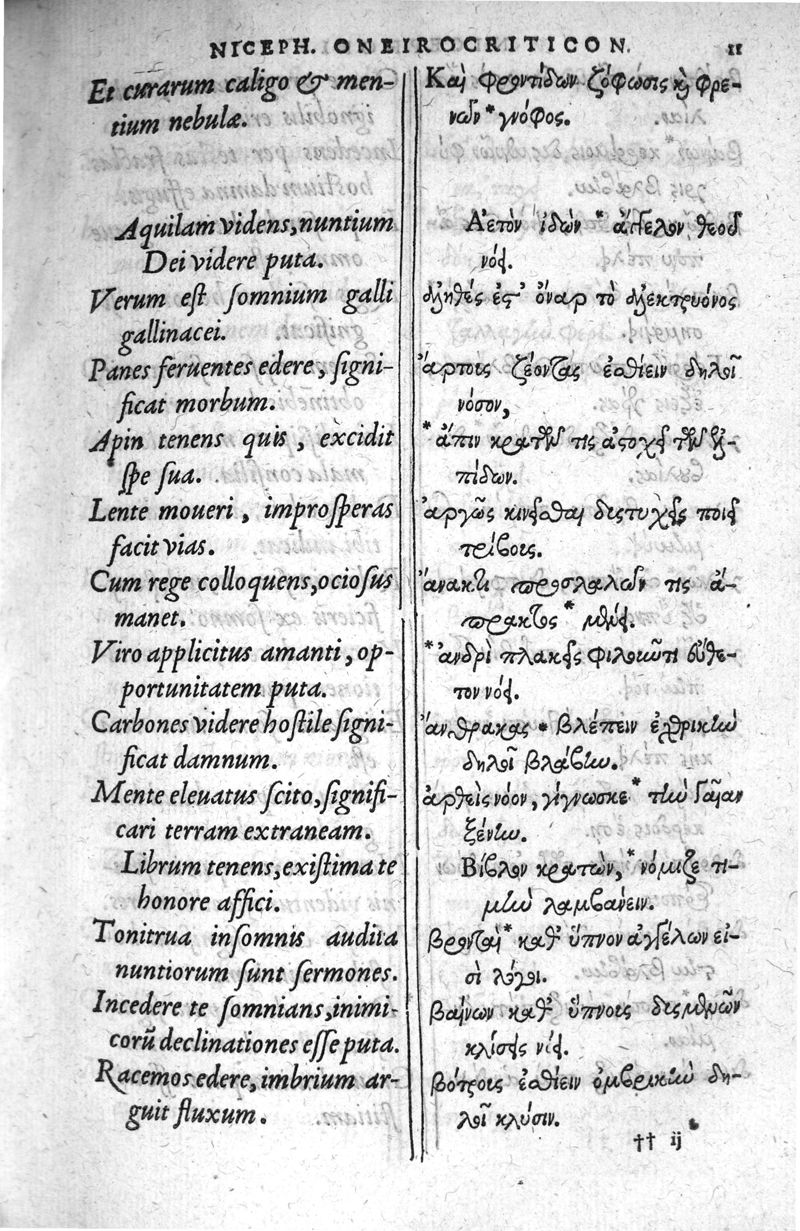 NICEPH. ONEIROCRITICON. 11
Et curarum caligo & men-
tium nebulæ.
Aquilam videns, nuntium
Dei videre puta.
Verum est somnium galli
gallinacei.
Panes feruentes edere, signi-
ficat morbum.
Apin tenens quis, excidit
spe sua.
Lente moueri, improsperas
facit vias.
Cum rege colloquens, ociosus
manet.
Viro applicitus amanti, op-
portunitatem puta.
Carbones videre hostile signi-
ficat damnum.
Mente eleuatus scito, signifi-
cari terram extraneam.
Librum tenens, existima te
honore affici.
Tonitrua insomnis audita
nuntiorum sunt sermones.
Incedere te somnians, inimi-
corũ declinationes esse puta.
Racemos edere, imbrium ar-
guit fluxum.
Καὶ φροντίδων ζόφωσις κὶ φρε-
νῶν * γνόφος.
Ἀετὸν ἰδὼν * ἄγγελον θεοῦ
νόει.
ἀληθές ἐστ' ὄναρ τὸ ἀλεκτρυόνος
ἄρτοις ζέοντας ἐσθίειν δηλοῖ
νόσον,
* ἄπιν κρατῶν τις ἀστοχεῖ τῶν ἐλ-
πίδων.
ἀργῶς κινεῖσθαι δυστυχεῖς ποιεῖ
τρίβοις.
ἄνακτι προσλαλῶν τις ἄ-
πρακτος * μένει.
* ἀνδρὶ πλακεὶς φιλοῦντι εὔθε-
τον νόει.
ἄνθρακας * βλέπειν ἐχθρικὴν
δηλοῖ βλάβην.
ἀρθεὶς νόον, γίγνωσκε * τὴν γαῖαν
ξένην.
Βίβλον κρατῶν, * νόμιζε τι-
μὴν λαμβάνειν.
βρονταὶ * καθ' ὕπνον ἀγγέλων εἰ-
σὶ λόγοι.
βαίνων καθ' ὕπνοις δυσμενῶν
κλίσεις νόει.
βότροις ἐσθίειν ὀμβρικὴν δη-
λοῖ κλύσιν.
†† ij